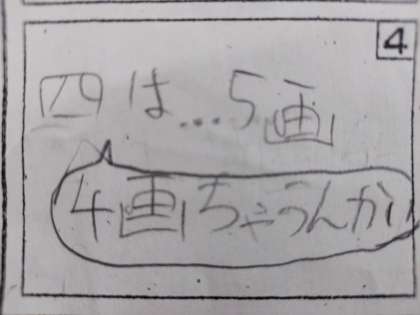 4
四は…5画
4画ちゃうんかい